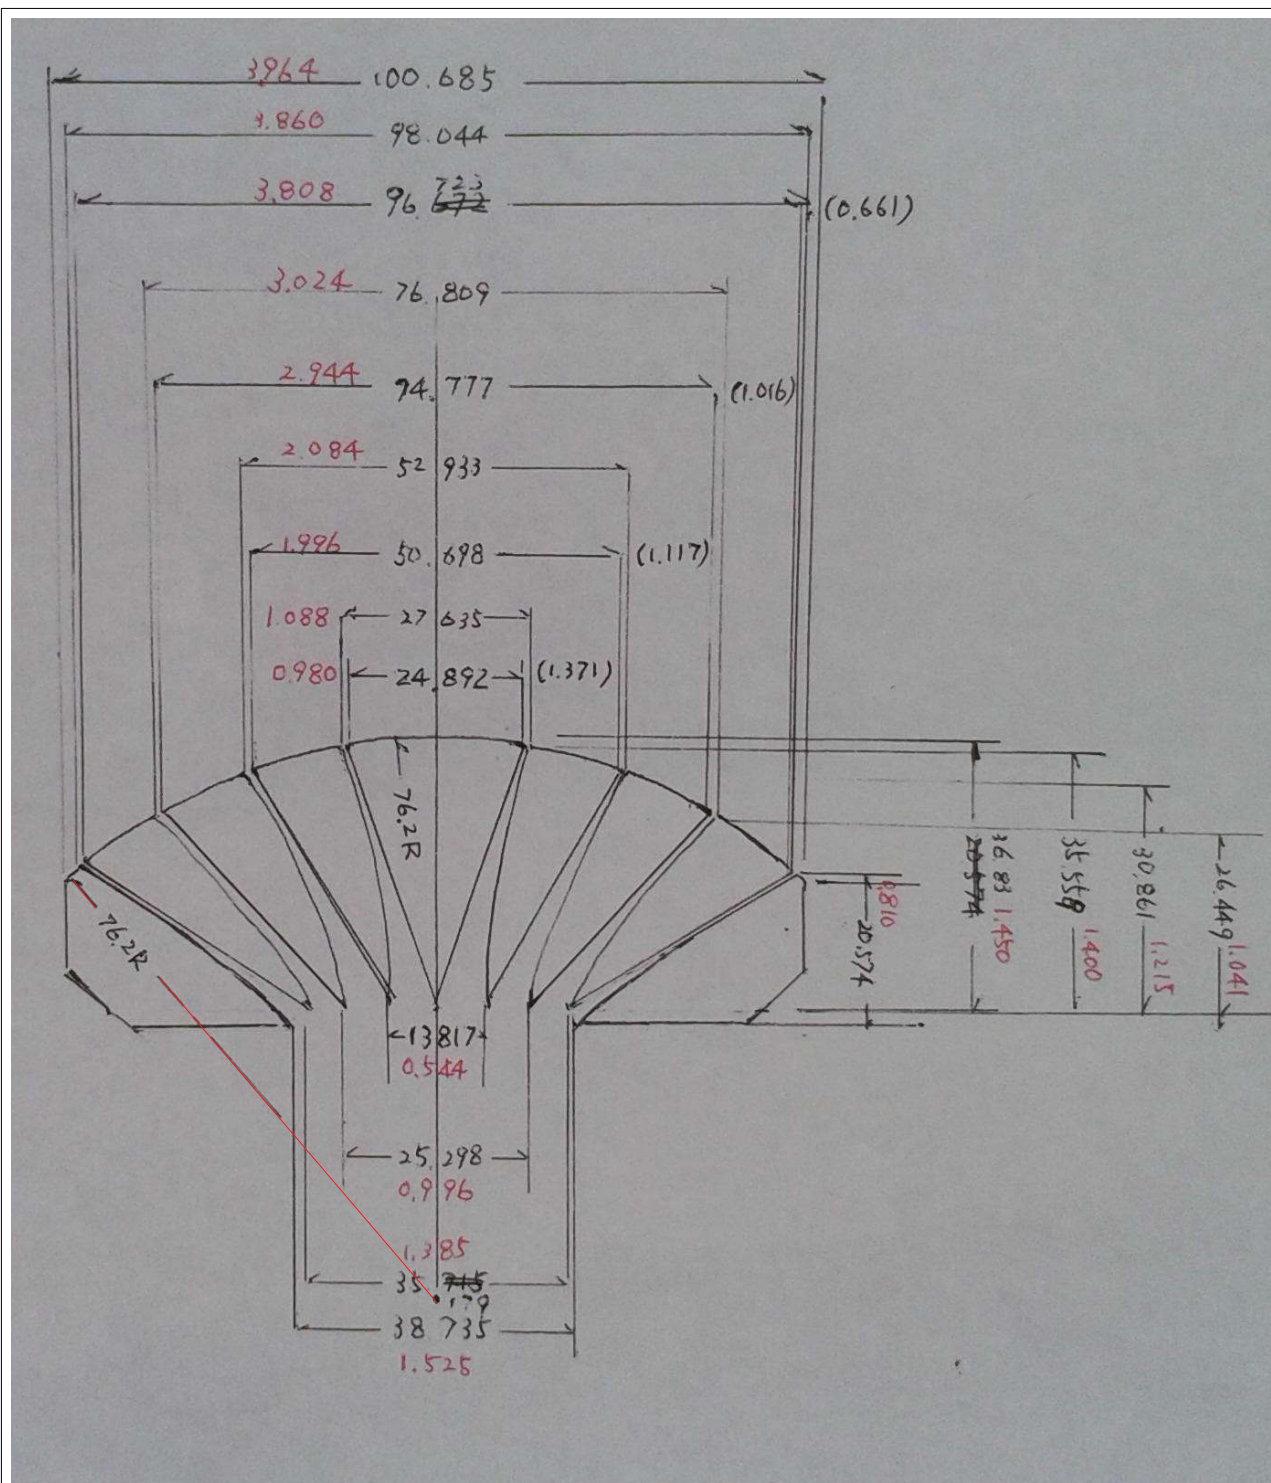 3.964 100.685
3.860 98.044
3.808 96.723
(0.661)
3.024 76.809
2.944 74.777 (1.016)
2.084 52.933
1.996 50.698 (1.117)
1.088 27.635
0.980 24.892 (1.371)
76.2R
76.2R
0.810
20.574
20.574
36.83 1.450
35.559 1.400
30.861 1.215
26.449 1.041
13.817
0.544
25.298
0.996
1.385
35.179
38.735
1.525